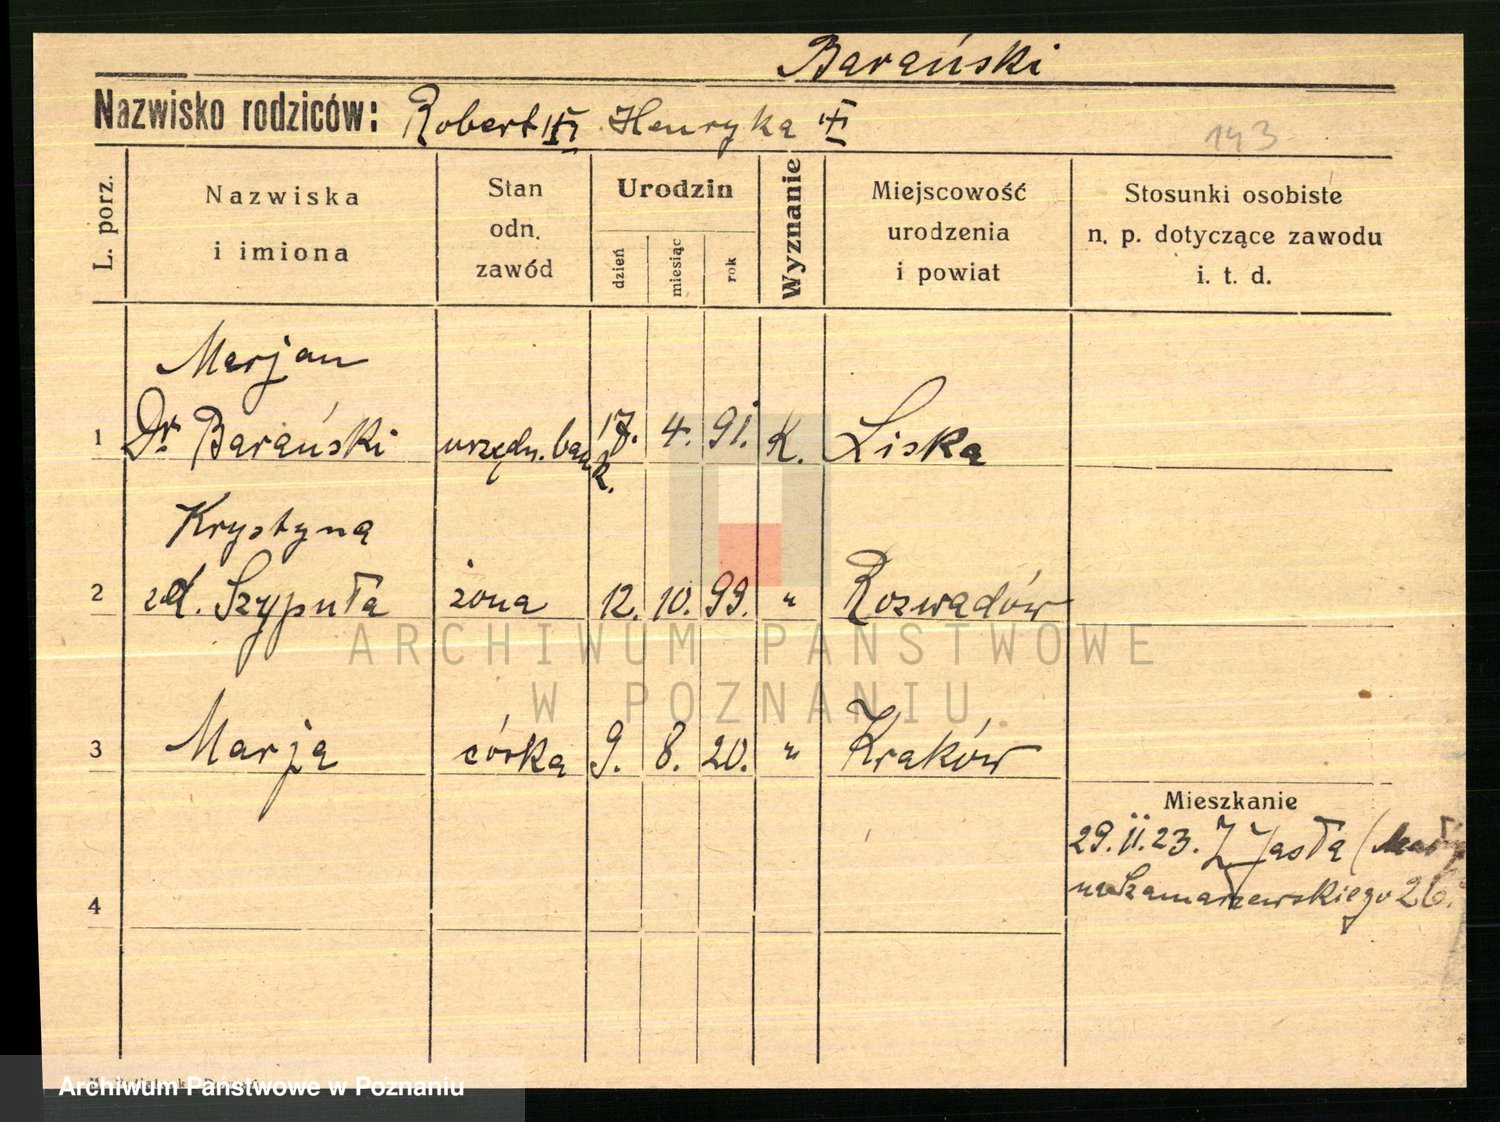 Barański
Nazwisko rodziców: Robert Henryka
143
L. porz.
Nazwiska
i imiona
Stan
odn.
zawód
Urodzin
dzień
miesiąc
rok
Wyznanie
Miejscowość
urodzenia
i powiat
Stosunki osobiste
n. p. dotyczące zawodu
i. t. d.
Marjan
1 Dr Barański urzędn. bank. 17. 4. 91. K. Liska
Krystyna
2 zd. Szypuła żona 12. 10. 99. " Rozwadów
3 Marja córka 9. 8. 20. " Kraków
Mieszkanie
29.II.23. Z Jasła (
Szamarzewskiego 26.
4
ARCHIWUM PAŃSTWOWE
W POZNANIU
Archiwum Państwowe w Poznaniu